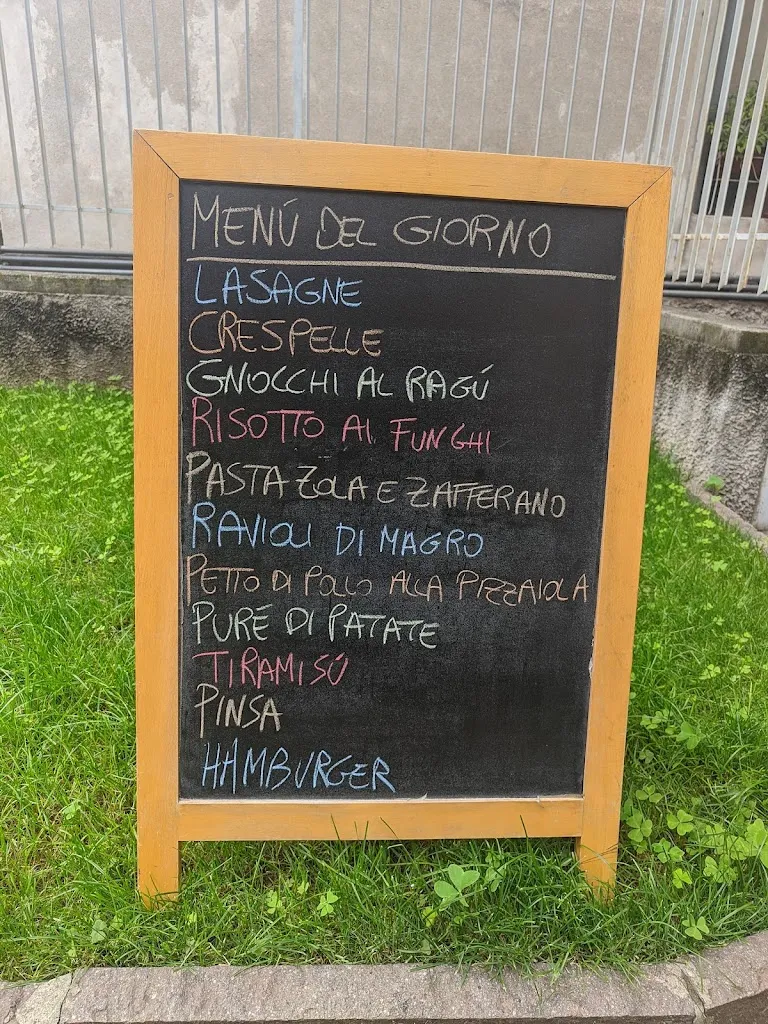 MENÚ DEL GIORNO
LASAGNE
CRESPELLE
GNOCCHI AL RAGÚ
RISOTTO AI FUNGHI
PASTA ZOLA E ZAFFERANO
RAVIOLI DI MAGRO
PETTO DI POLLO ALLA PIZZAIOLA
PURÉ DI PATATE
TIRAMISÚ
PINSA
HAMBURGER